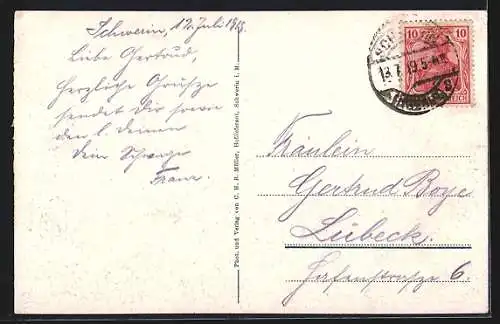 Schwerin, 12. Juli 19
Liebe Gertrud,
Herzliche Grüsze
sendet Dir sowie
den l. Deinen
Dein Schwager
Franz.
Phot. und Verlag von C. M. R. Müller, Hoflieferant, Schwerin i. M.
10 10
13.7.19.5-6N.
REICH
Fräulein
Gertrud Boye
Lübeck.
Hafenstrasze 6.